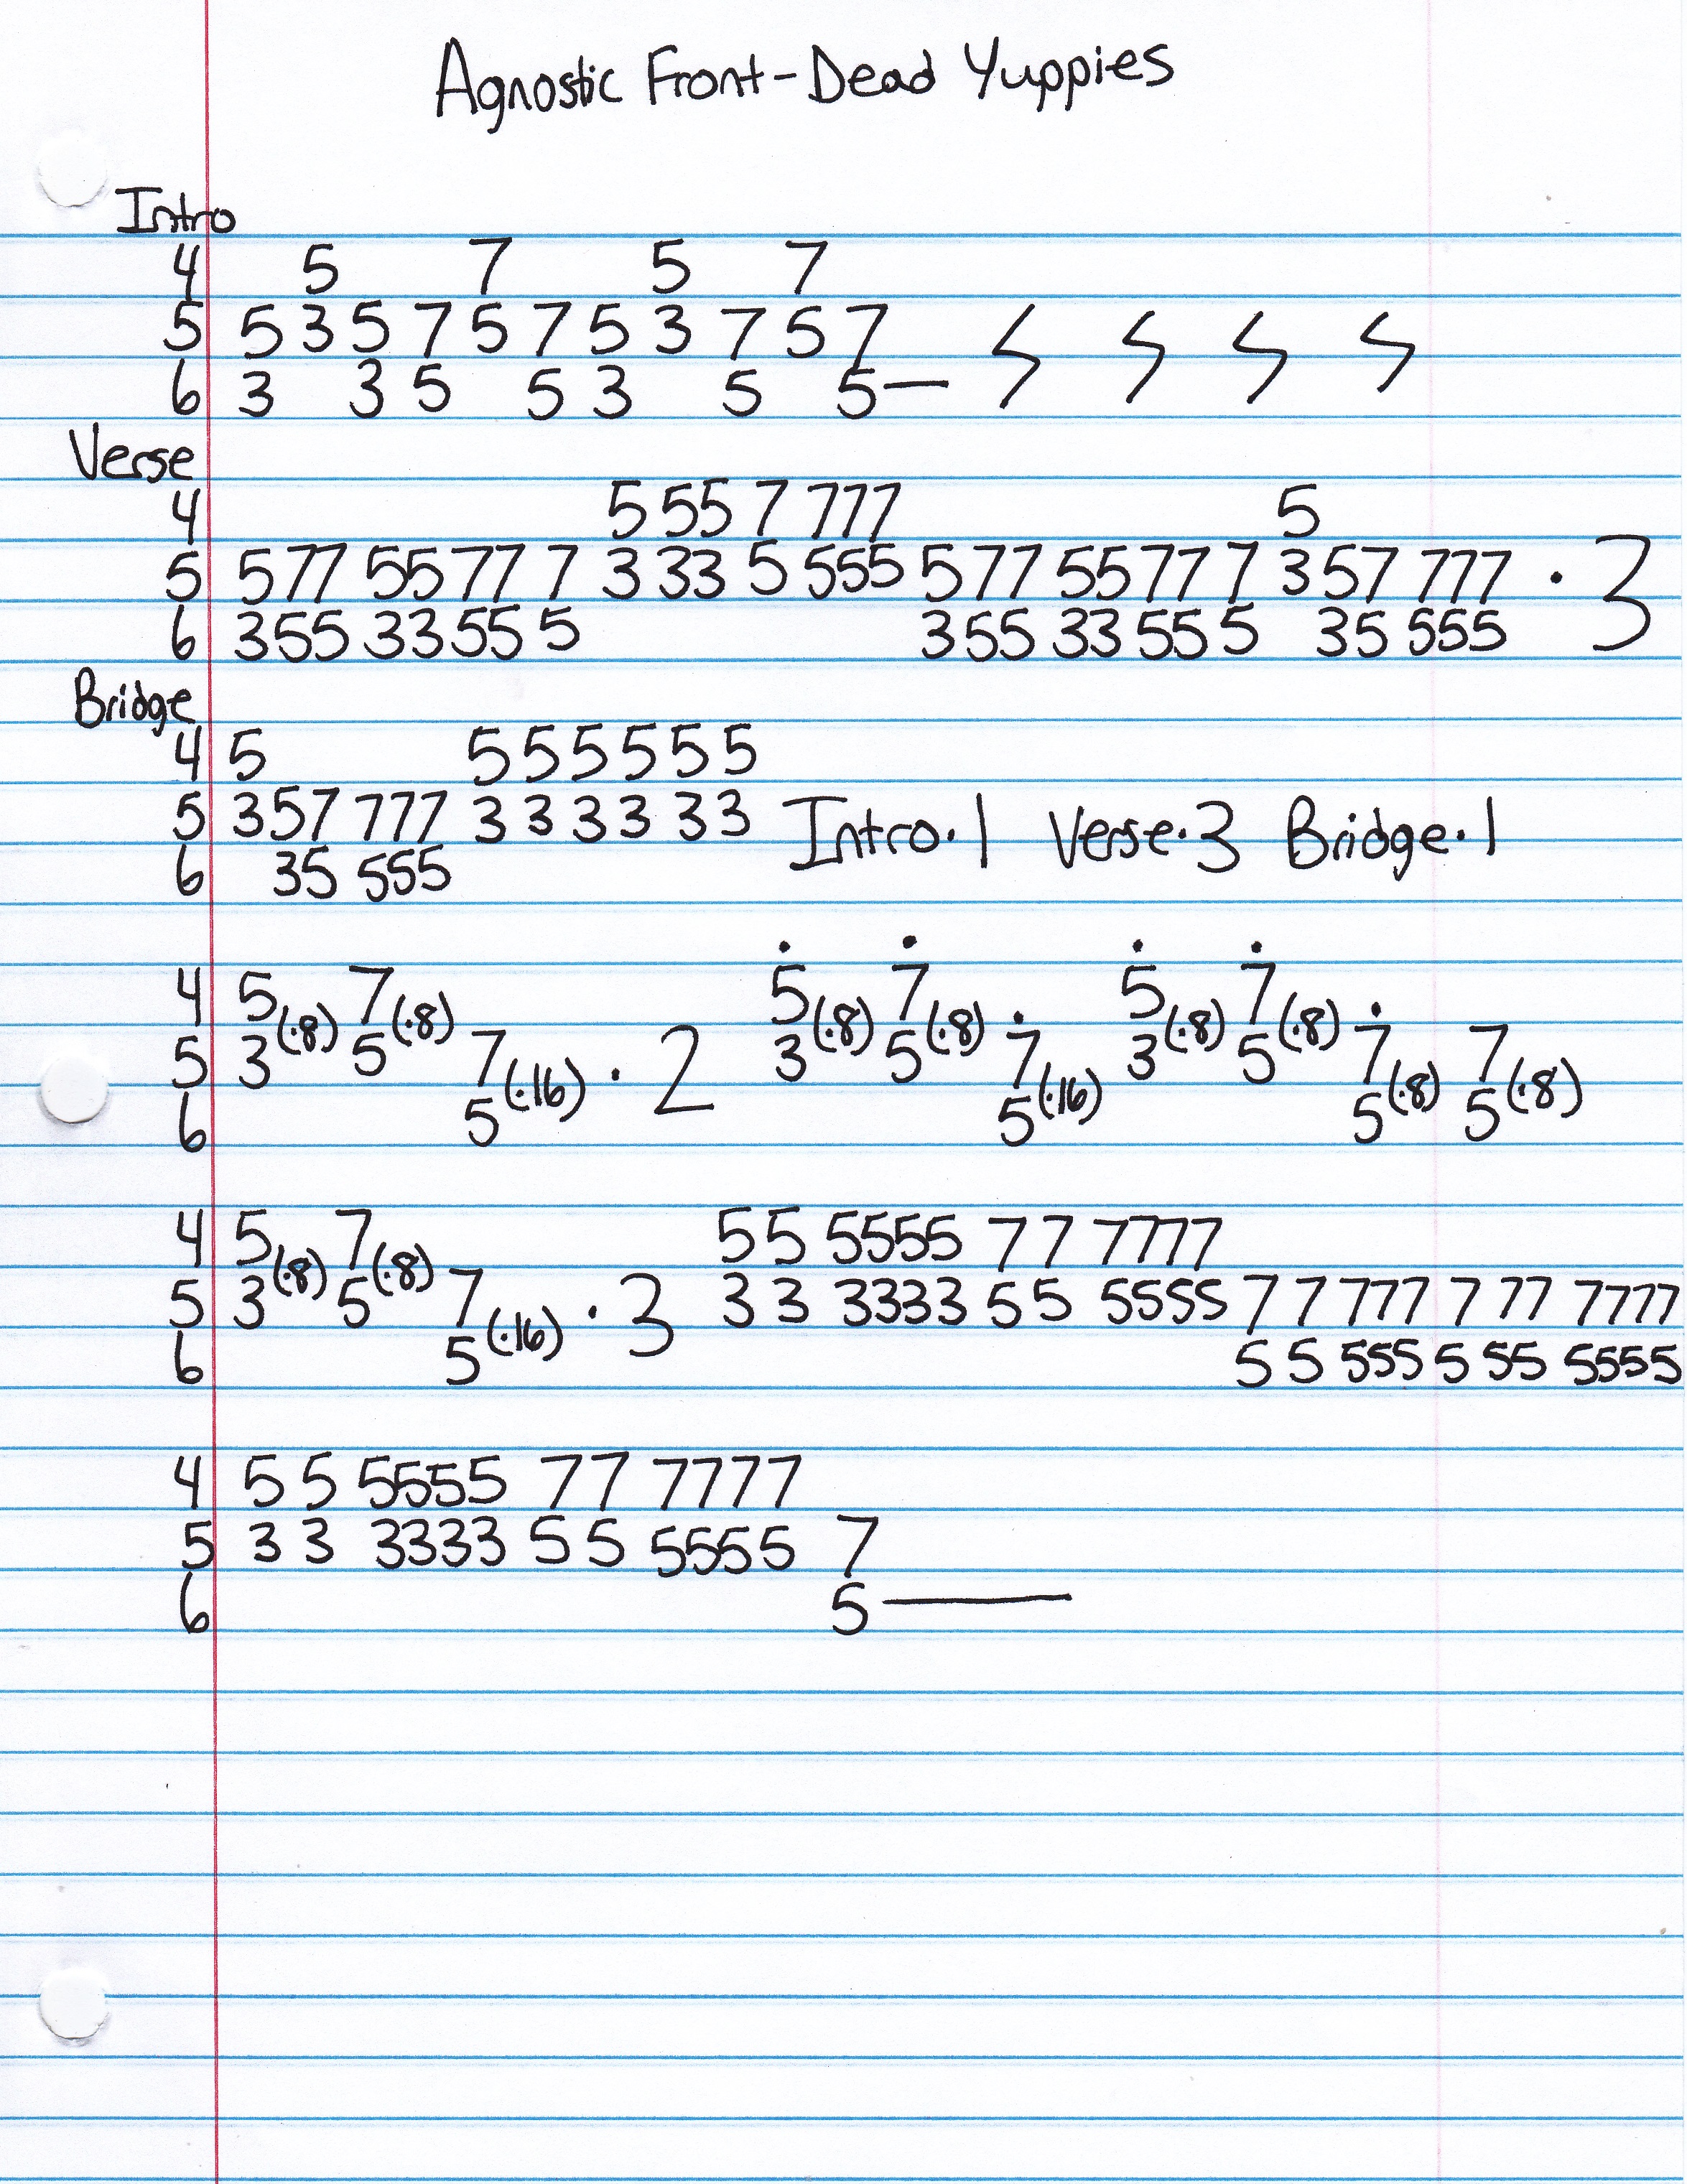 Agnostic Front-Dead Yuppies
Intro
4 5 7 5 7
5 5 3 5 7 5 7 5 3 7 5 7
6 3 3 5 5 3 5 5—
Verse
4 5 55 7 777 5
5 577 5577 7 3 33 5 555 577 5577 7 357 777 · 3
6 355 3355 5 355 3355 5 35 555
Bridge
4 5 5 5 5 5 5 5
5 357 777 3 3 3 3 3 3 Intro·1 Verse·3 Bridge·1
6 35 555
4 5(·8) 7(·8) 5(·8) 7(·8) 5(·8) 7(·8)
5 3 5 7(·16) · 2 3 5 7(·16) 3 5 7(·8) 7(·8)
6 5 5 5 5
4 5(·8) 7(·8) 5 5 5555 7 7 7777
5 3 5 7(·16) · 3 3 3 3333 5 5 5555 7 7 777 7 77 7777
6 5 5 5 555 5 55 5555
4 5 5 5555 7 7 7777
5 3 3 3333 5 5 5555 7
6 5——